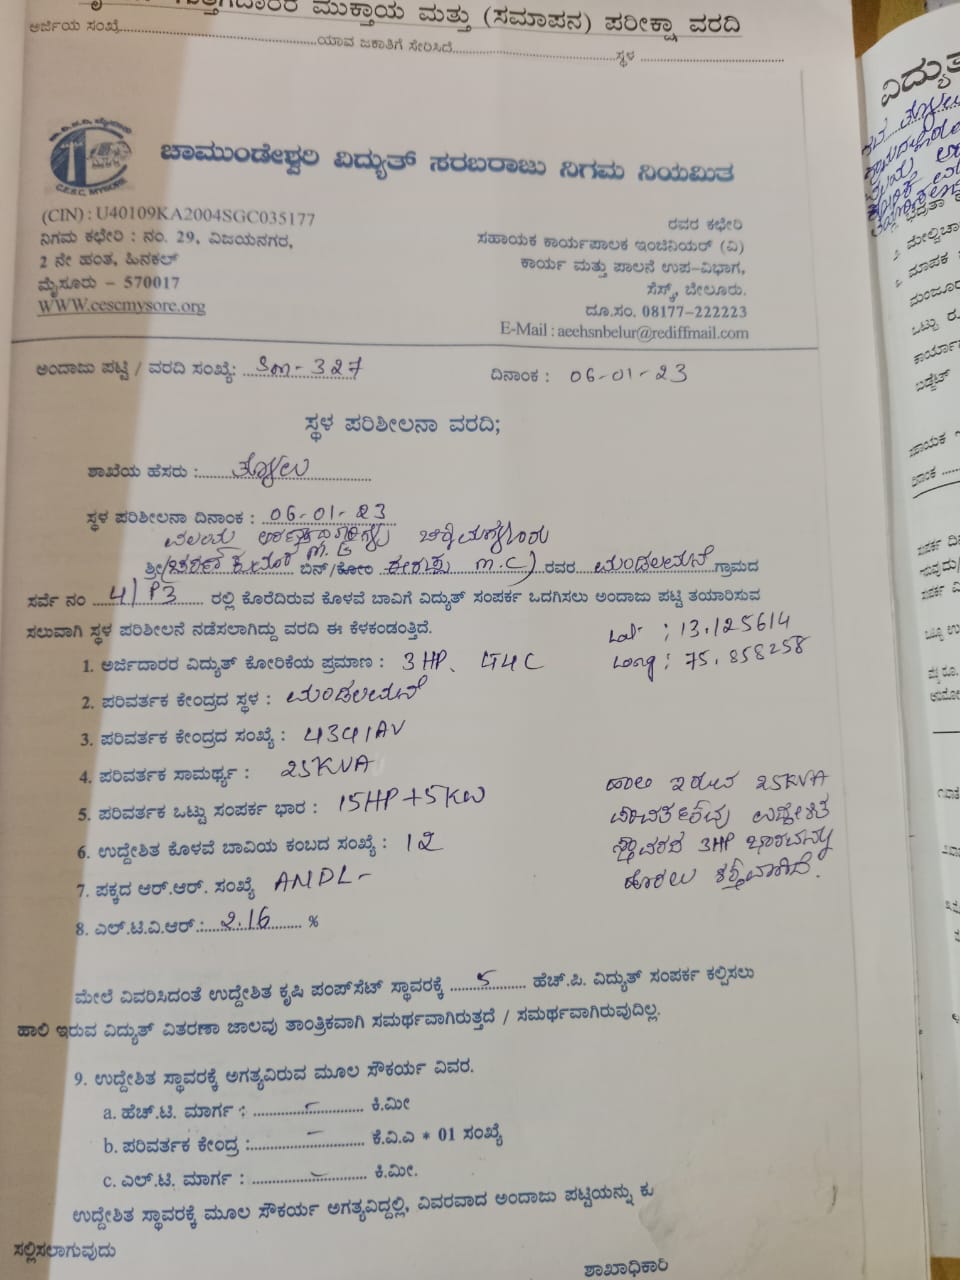 ಮುಕ್ತಾಯ ಮತ್ತು (ಸಮಾಪನ) ಪರೀಕ್ಷಾ ವರದಿ
ಅರ್ಜಿಯ ಸಂಖ್ಯೆ............ಯಾವ ಜಕಾತಿಗೆ ಸೇರಿಸಿದೆ............ಸ್ಥಳ ............
C.E.S.C. MYSORE
ಚಾಮುಂಡೇಶ್ವರಿ ವಿದ್ಯುತ್ ಸರಬರಾಜು ನಿಗಮ ನಿಯಮಿತ
(CIN) : U40109KA2004SGC035177
ನಿಗಮ ಕಛೇರಿ : ನಂ. 29, ವಿಜಯನಗರ,
2 ನೇ ಹಂತ, ಹಿನಕಲ್
ಮೈಸೂರು – 570017
WWW.cescmysore.org
ರವರ ಕಛೇರಿ
ಸಹಾಯಕ ಕಾರ್ಯಪಾಲಕ ಇಂಜಿನಿಯರ್ (ವಿ)
ಕಾರ್ಯ ಮತ್ತು ಪಾಲನೆ ಉಪ-ವಿಭಾಗ,
ಸೆಸ್ಕ್, ಬೇಲೂರು.
ದೂ.ಸಂ. 08177-222223
E-Mail : aeehsnbelur@rediffmail.com
ಅಂದಾಜು ಪಟ್ಟಿ / ವರದಿ ಸಂಖ್ಯೆ: Sm-327 ದಿನಾಂಕ : 06-01-23
ಸ್ಥಳ ಪರಿಶೀಲನಾ ವರದಿ;
ಶಾಖೆಯ ಹೆಸರು :
ಸ್ಥಳ ಪರಿಶೀಲನಾ ದಿನಾಂಕ : 06-01-23
ವಲಯ ಅರಣ್ಯಾಧಿಕಾರಿಗಳು ಚಿಕ್ಕಮಗಳೂರು
ಶ್ರೀ (ಚರಣ್ ಕುಮಾರ್ M.E ಬಿನ್/ಕೋಂ ಈರಪ್ಪ M.C) ರವರ ಮಂಡಲಮನೆ ಗ್ರಾಮದ
ಸರ್ವೆ ನಂ 4/P3 ರಲ್ಲಿ ಕೊರೆದಿರುವ ಕೊಳವೆ ಬಾವಿಗೆ ವಿದ್ಯುತ್ ಸಂಪರ್ಕ ಒದಗಿಸಲು ಅಂದಾಜು ಪಟ್ಟಿ ತಯಾರಿಸುವ
ಸಲುವಾಗಿ ಸ್ಥಳ ಪರಿಶೀಲನೆ ನಡೆಸಲಾಗಿದ್ದು ವರದಿ ಈ ಕೆಳಕಂಡಂತಿದೆ. Lat : 13.125614
1. ಅರ್ಜಿದಾರರ ವಿದ್ಯುತ್ ಕೋರಿಕೆಯ ಪ್ರಮಾಣ : 3HP. Long : 75.858258
2. ಪರಿವರ್ತಕ ಕೇಂದ್ರದ ಸ್ಥಳ : ಮಂಡಲಮನೆ
3. ಪರಿವರ್ತಕ ಕೇಂದ್ರದ ಸಂಖ್ಯೆ :
4. ಪರಿವರ್ತಕ ಸಾಮರ್ಥ್ಯ : 25KVA
5. ಪರಿವರ್ತಕ ಒಟ್ಟು ಸಂಪರ್ಕ ಭಾರ : 15HP+5KW
6. ಉದ್ದೇಶಿತ ಕೊಳವೆ ಬಾವಿಯ ಕಂಬದ ಸಂಖ್ಯೆ : 12
7. ಪಕ್ಕದ ಆರ್.ಆರ್. ಸಂಖ್ಯೆ ANDL-
8. ಎಲ್.ಟಿ.ವಿ.ಆರ್.: 2.16 %
ಹಾಲಿ ಇರುವ 25KVA
ಪರಿವರ್ತಕವು ಉದ್ದೇಶಿತ
ಸ್ಥಾವರದ 3HP ಭಾರವನ್ನು
ಹೊರಲು ಶಕ್ತವಾಗಿದೆ.
ಮೇಲೆ ವಿವರಿಸಿದಂತೆ ಉದ್ದೇಶಿತ ಕೃಷಿ ಪಂಪ್‌ಸೆಟ್ ಸ್ಥಾವರಕ್ಕೆ 5 ಹೆಚ್.ಪಿ. ವಿದ್ಯುತ್ ಸಂಪರ್ಕ ಕಲ್ಪಿಸಲು
ಹಾಲಿ ಇರುವ ವಿದ್ಯುತ್ ವಿತರಣಾ ಜಾಲವು ತಾಂತ್ರಿಕವಾಗಿ ಸಮರ್ಥವಾಗಿರುತ್ತದೆ / ಸಮರ್ಥವಾಗಿರುವುದಿಲ್ಲ.
9. ಉದ್ದೇಶಿತ ಸ್ಥಾವರಕ್ಕೆ ಅಗತ್ಯವಿರುವ ಮೂಲ ಸೌಕರ್ಯ ವಿವರ.
a. ಹೆಚ್.ಟಿ. ಮಾರ್ಗ : ...... – ...... ಕಿ.ಮೀ
b. ಪರಿವರ್ತಕ ಕೇಂದ್ರ : ...... – ...... ಕೆ.ವಿ.ಎ * 01 ಸಂಖ್ಯೆ
c. ಎಲ್.ಟಿ. ಮಾರ್ಗ : ...... – ...... ಕಿ.ಮೀ.
ಉದ್ದೇಶಿತ ಸ್ಥಾವರಕ್ಕೆ ಮೂಲ ಸೌಕರ್ಯ ಅಗತ್ಯವಿದ್ದಲ್ಲಿ, ವಿವರವಾದ ಅಂದಾಜು ಪಟ್ಟಿಯನ್ನು
ಸಲ್ಲಿಸಲಾಗುವುದು
ಶಾಖಾಧಿಕಾರಿ